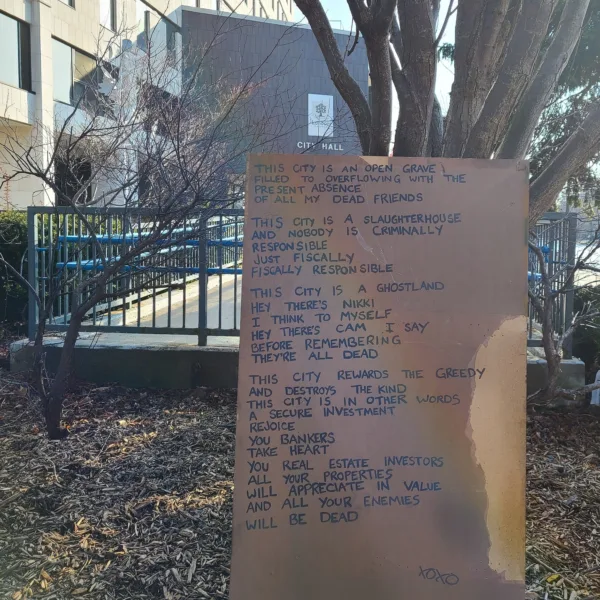 CITY HALL
THIS CITY IS AN OPEN GRAVE
FILLED TO OVERFLOWING WITH THE
PRESENT ABSENCE
OF ALL MY DEAD FRIENDS
THIS CITY IS A SLAUGHTERHOUSE
AND NOBODY IS CRIMINALLY
RESPONSIBLE
JUST FISCALLY
FISCALLY RESPONSIBLE
THIS CITY IS A GHOSTLAND
HEY THERE'S NIKKI
I THINK TO MYSELF
HEY THERE'S CAM I SAY
BEFORE REMEMBERING
THEY'RE ALL DEAD
THIS CITY REWARDS THE GREEDY
AND DESTROYS THE KIND
THIS CITY IS IN OTHER WORDS
A SECURE INVESTMENT
REJOICE
YOU BANKERS
TAKE HEART
YOU REAL ESTATE INVESTORS
ALL YOUR PROPERTIES
WILL APPRECIATE IN VALUE
AND ALL YOUR ENEMIES
WILL BE DEAD
XOXO